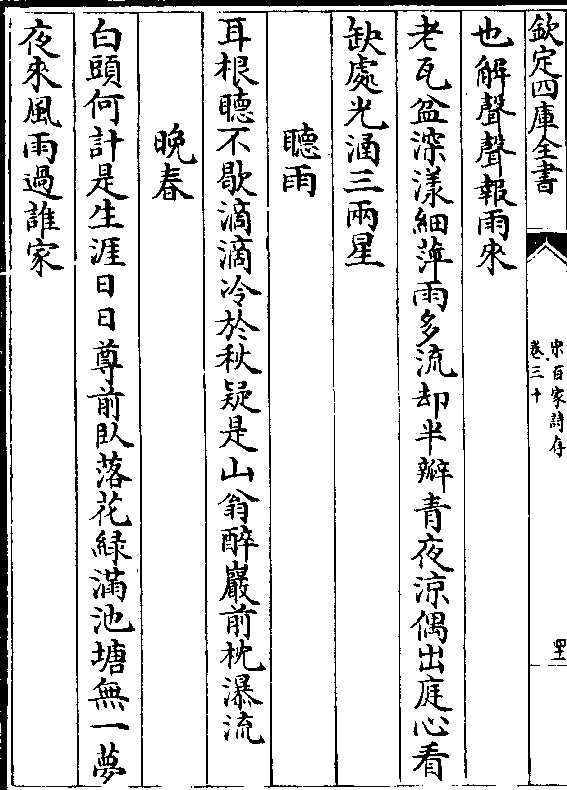 欽定四庫全書
宋百家詩存
卷三十
四
也解聲聲報雨來
老瓦盆深漾細萍雨多流却半瓣青夜涼偶出庭心看
缺處光涵三兩星
聽雨
耳根聽不歇滴滴冷於秋疑是山翁醉巖前枕瀑流
晚春
白頭何計是生涯日日尊前臥落花緑滿池塘無一夢
夜來風雨過誰家